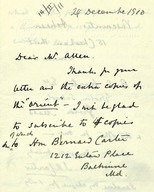 24 December 1910
Dear Mr. Allen.
Thanks for your
letter and the extra copies of
the "Orient" - I will be glad
to subscribe to 4 copies
of which
Hon Bernard Carter
1212 Eutaw Place
Baltimore
Md.